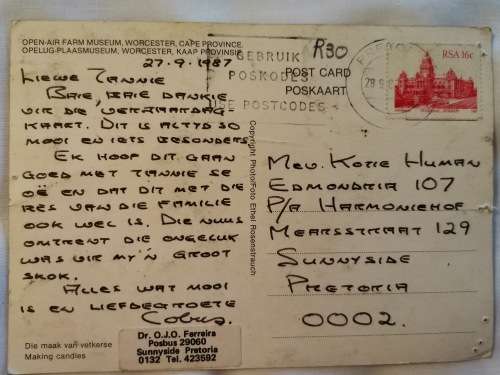 OPEN-AIR FARM MUSEUM, WORCESTER, CAPE PROVINCE
OPELUG-PLAASMUSEUM, WORCESTER, KAAP PROVINSIE
27.9.1987
LIEWE TANNIE
BAIE, BAIE DANKIE
VIR DIE VERJAARDAG-
KAART. DIT IS ALTYD SO
MOOI EN IETS BESONDERS.
EK HOOP DIT GAAN
GOED MET TANNIE SE
OË EN DAT DIT MET DIE
RES VAN DIE FAMILIE
OOK WEL IS. DIE NUUS
OMTRENT DIE ONGELUK
WAS VIR MY 'N GROOT
SKOK.
ALLES WAT MOOI
IS EN LIEFDEGROETE
Cobus.
Die maak van vetkerse
Making candles
Dr. O.J.O. Ferreira
Posbus 29060
Sunnyside Pretoria
0132 Tel. 423592
Copyright Photo/Foto Ethel Rosenstrauch
GEBRUIK
POSKODES
USE POSTCODES
R30
POST CARD
POSKAART
RSA 16c
MEV. KOTIE HUMAN
EDMONDRIA 107
P/A HARMONIEHOF
MEARSSTRAAT 129
SUNNYSIDE
PRETORIA
0002.